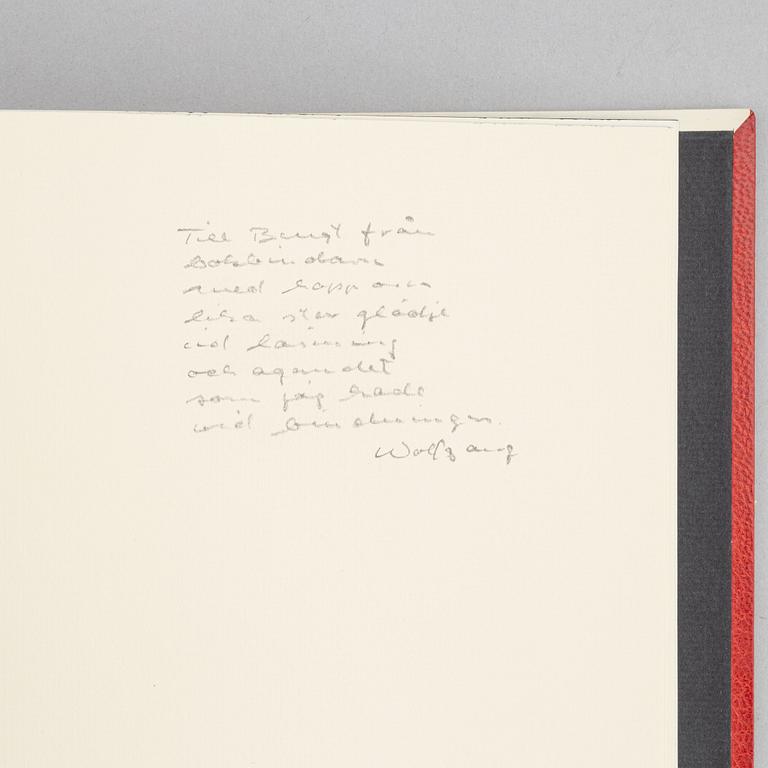 Till Bengt från
bokbindaren
med hopp om
lika stor glädje
vid läsning
och ägandet
som jag hade
vid bindningen.
Wolfgang